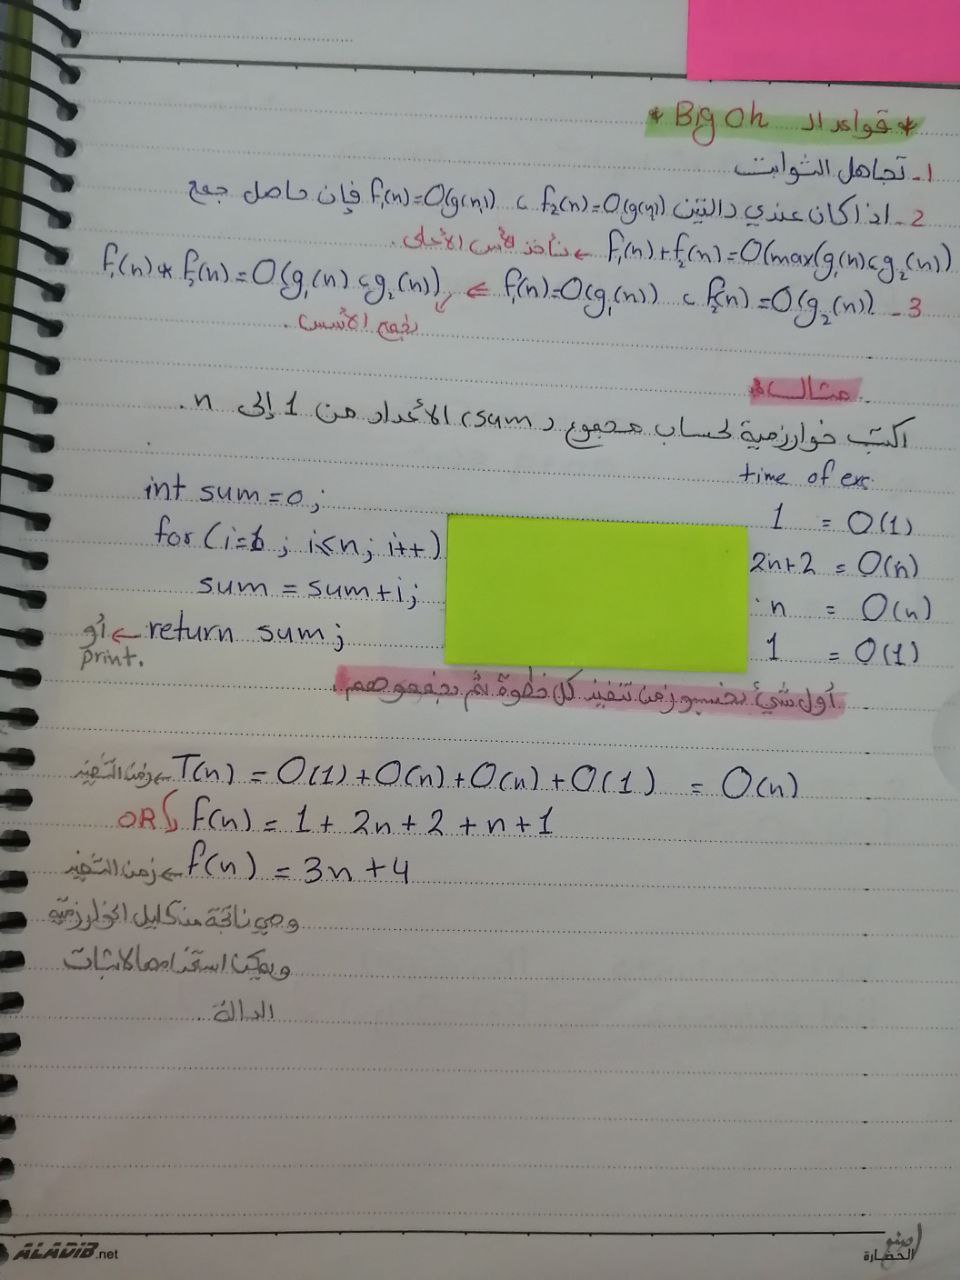 * قواعد الـ Big Oh *
1- تجاهل الثوابت
2- اذا كان عندي دالتين f₁(n)=O(g(n)) ، f₂(n)=O(g(n)) فإن حاصل جمع
f₁(n)+f₂(n)=O(max(g₁(n)،g₂(n)) ← نأخذ الأس الأعلى.
3- f₁(n)=O(g₁(n)) ، f₂(n)=O(g₂(n)) ⇐ f₁(n)*f₂(n)=O(g₁(n)،g₂(n))
نجمع الأسس.
مثال:
اكتب خوارزمية لحساب مجموع (sum) الأعداد من 1 إلى n.
time of exc
int sum=0; 1 = O(1)
for (i=1; i≤n; i++) 2n+2 = O(n)
sum = sum+i; n = O(n)
return sum; ← أو print. 1 = O(1)
أول شيء نحسب زمن تنفيذ كل خطوة ثم نجمعهم.
T(n) = O(1)+O(n)+O(n)+O(1) = O(n) ← زمن التنفيذ
OR f(n) = 1+2n+2+n+1
f(n) = 3n+4 ← زمن التنفيذ
وهي ناتجة من تحليل الخوارزمية
ويمكن استخدامها لاثبات
الدالة.
ALADIB.net
الحضارة